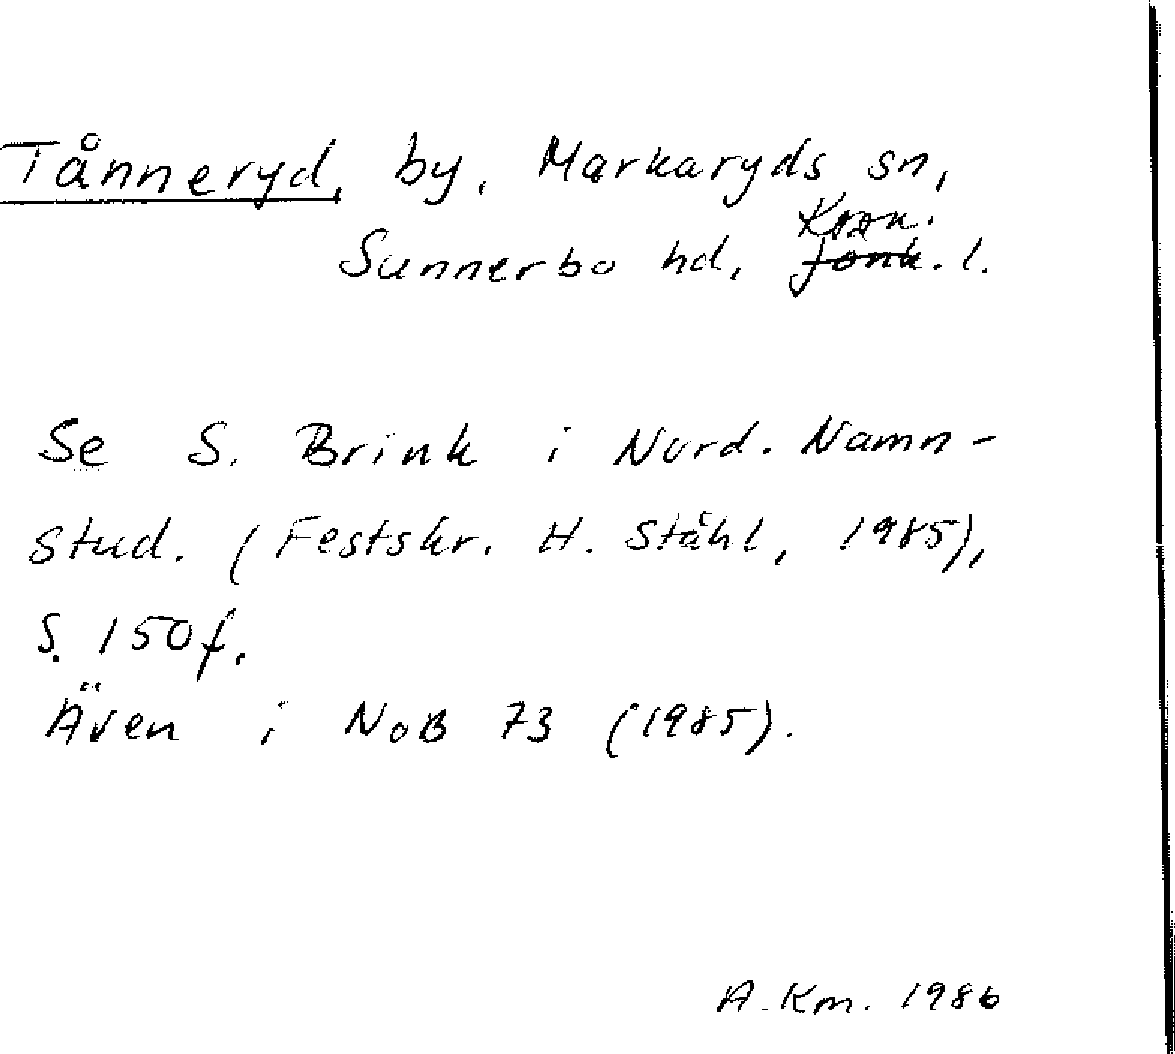 Tånneryd, by, Markaryds sn,
Kron.
Sunnerbo hd, Jönk. l.
Se S. Brink i Nord. Namn-
stud. (Festskr. H. Ståhl, 1985),
S. 150f.
Även i NoB 73 (1985).
A. Km. 1986